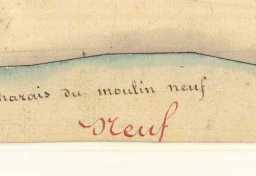 marais du moulin neuf
Neuf